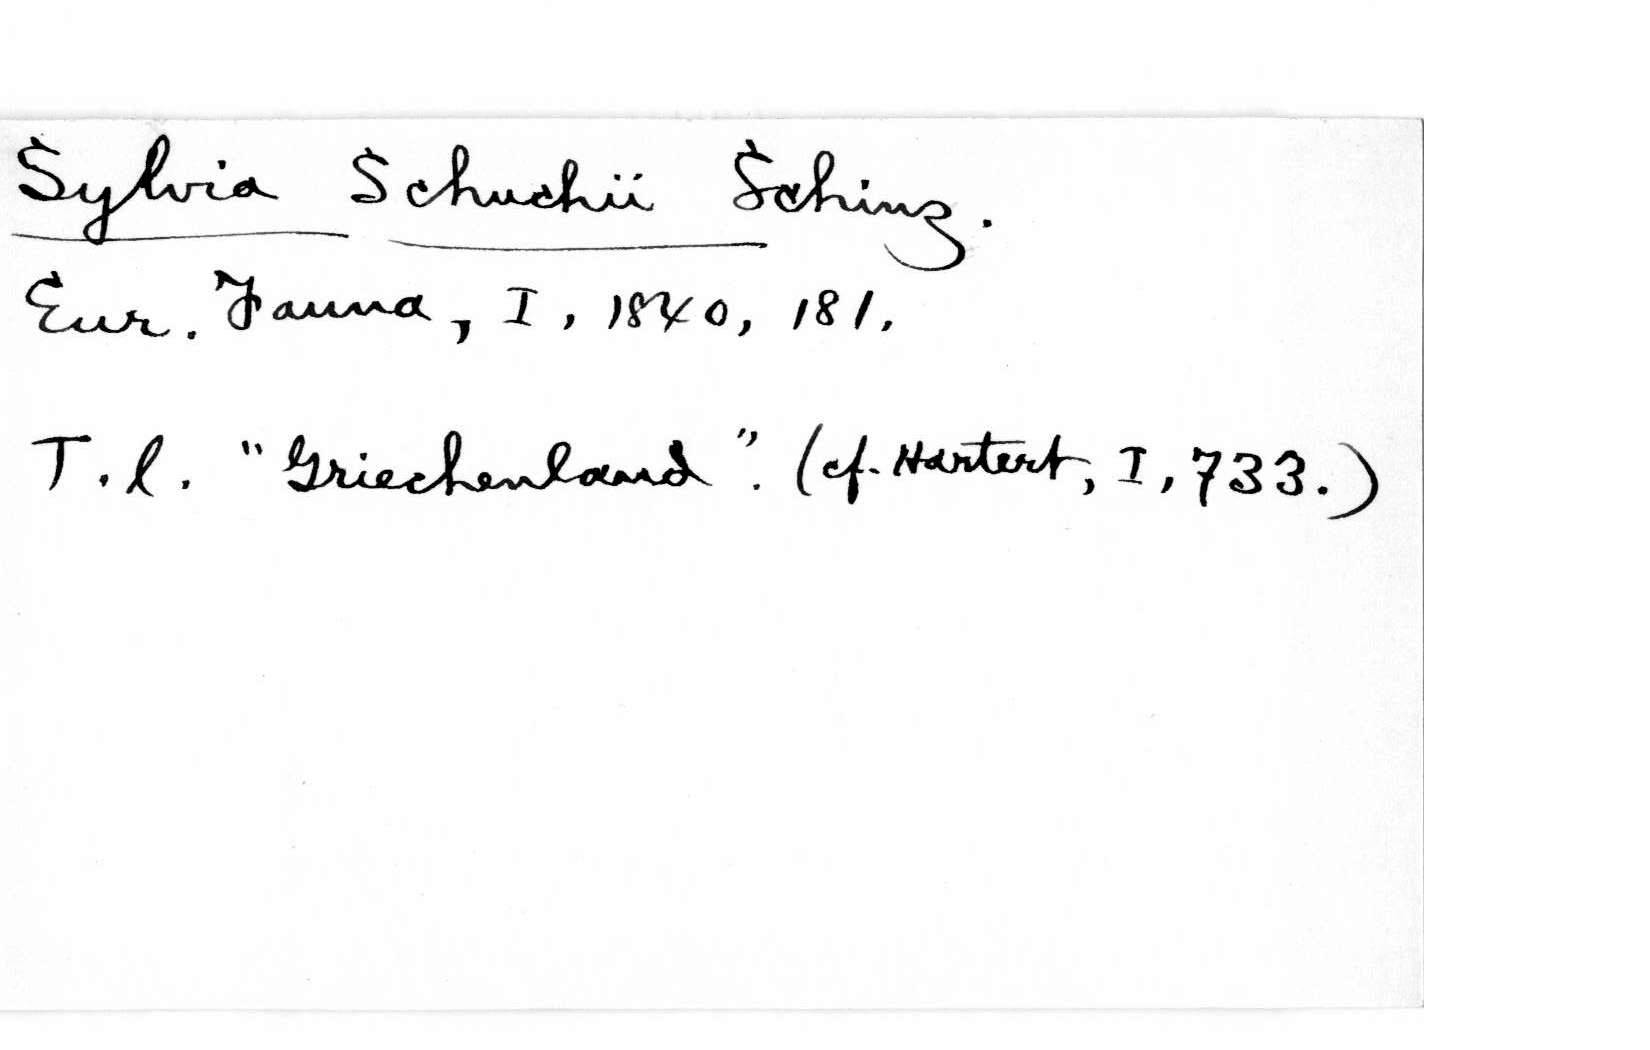 Sylvia Schuchii Schinz.
Eur. Fauna, I, 1840, 181.
T.l. "Griechenland". (cf. Hartert, I, 733.)